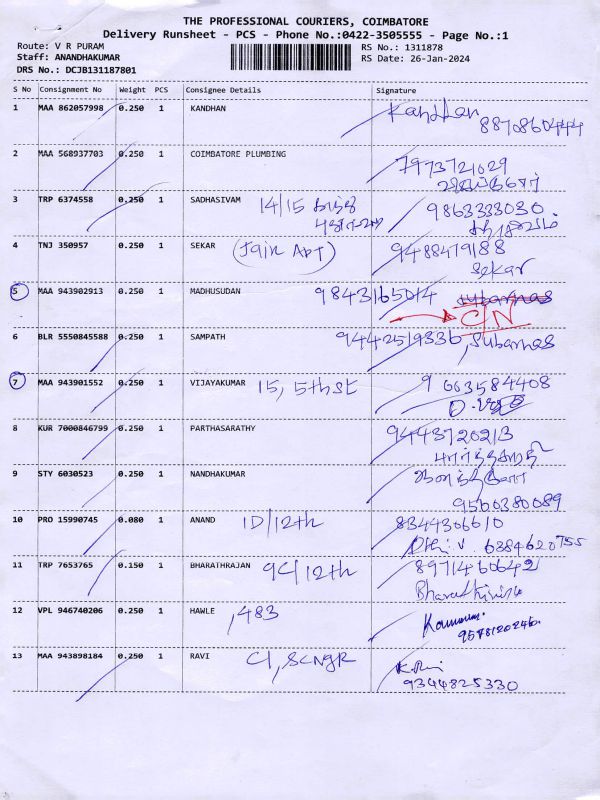 THE PROFESSIONAL COURIERS, COIMBATORE
Delivery Runsheet - PCS - Phone No.:0422-3505555 - Page No.:1
Route: V R PURAM
RS No.: 1311878
Staff: ANANDHAKUMAR
RS Date: 26-Jan-2024
DRS No.: DCJB131187801
S No Consignment No Weight PCS Consignee Details Signature
1 MAA 862057998 0.250 1 KANDHAN Kandhan
8870860444
2 MAA 568937703 0.250 1 COIMBATORE PLUMBING 7973721029
3 TRP 6374558 0.250 1 SADHASIVAM 14/15 9863333030
4 TNJ 350957 0.250 1 SEKAR (Jain Apt) 9488479188
Sekar
5 MAA 943902913 0.250 1 MADHUSUDAN 9843165014 Subarnas
C/N
6 BLR 5550845588 0.250 1 SAMPATH 9442519336, Subarnas
7 MAA 943901552 0.250 1 VIJAYAKUMAR 15, 5th St 9663584408
8 KUR 7000846799 0.250 1 PARTHASARATHY 9443720213
பார்த்தசாரதி
9 STY 6030523 0.250 1 NANDHKUMAR
9560380089
10 PRO 15990745 0.080 1 ANAND 1D/12th 8344306610
6384620755
11 TRP 7653765 0.150 1 BHARATHRAJAN 9C/12th 8971460642
12 VPL 946740206 0.250 1 HAWLE ,483
9578120246
13 MAA 943898184 0.250 1 RAVI C1, SCNGR K.Ravi
9344825330